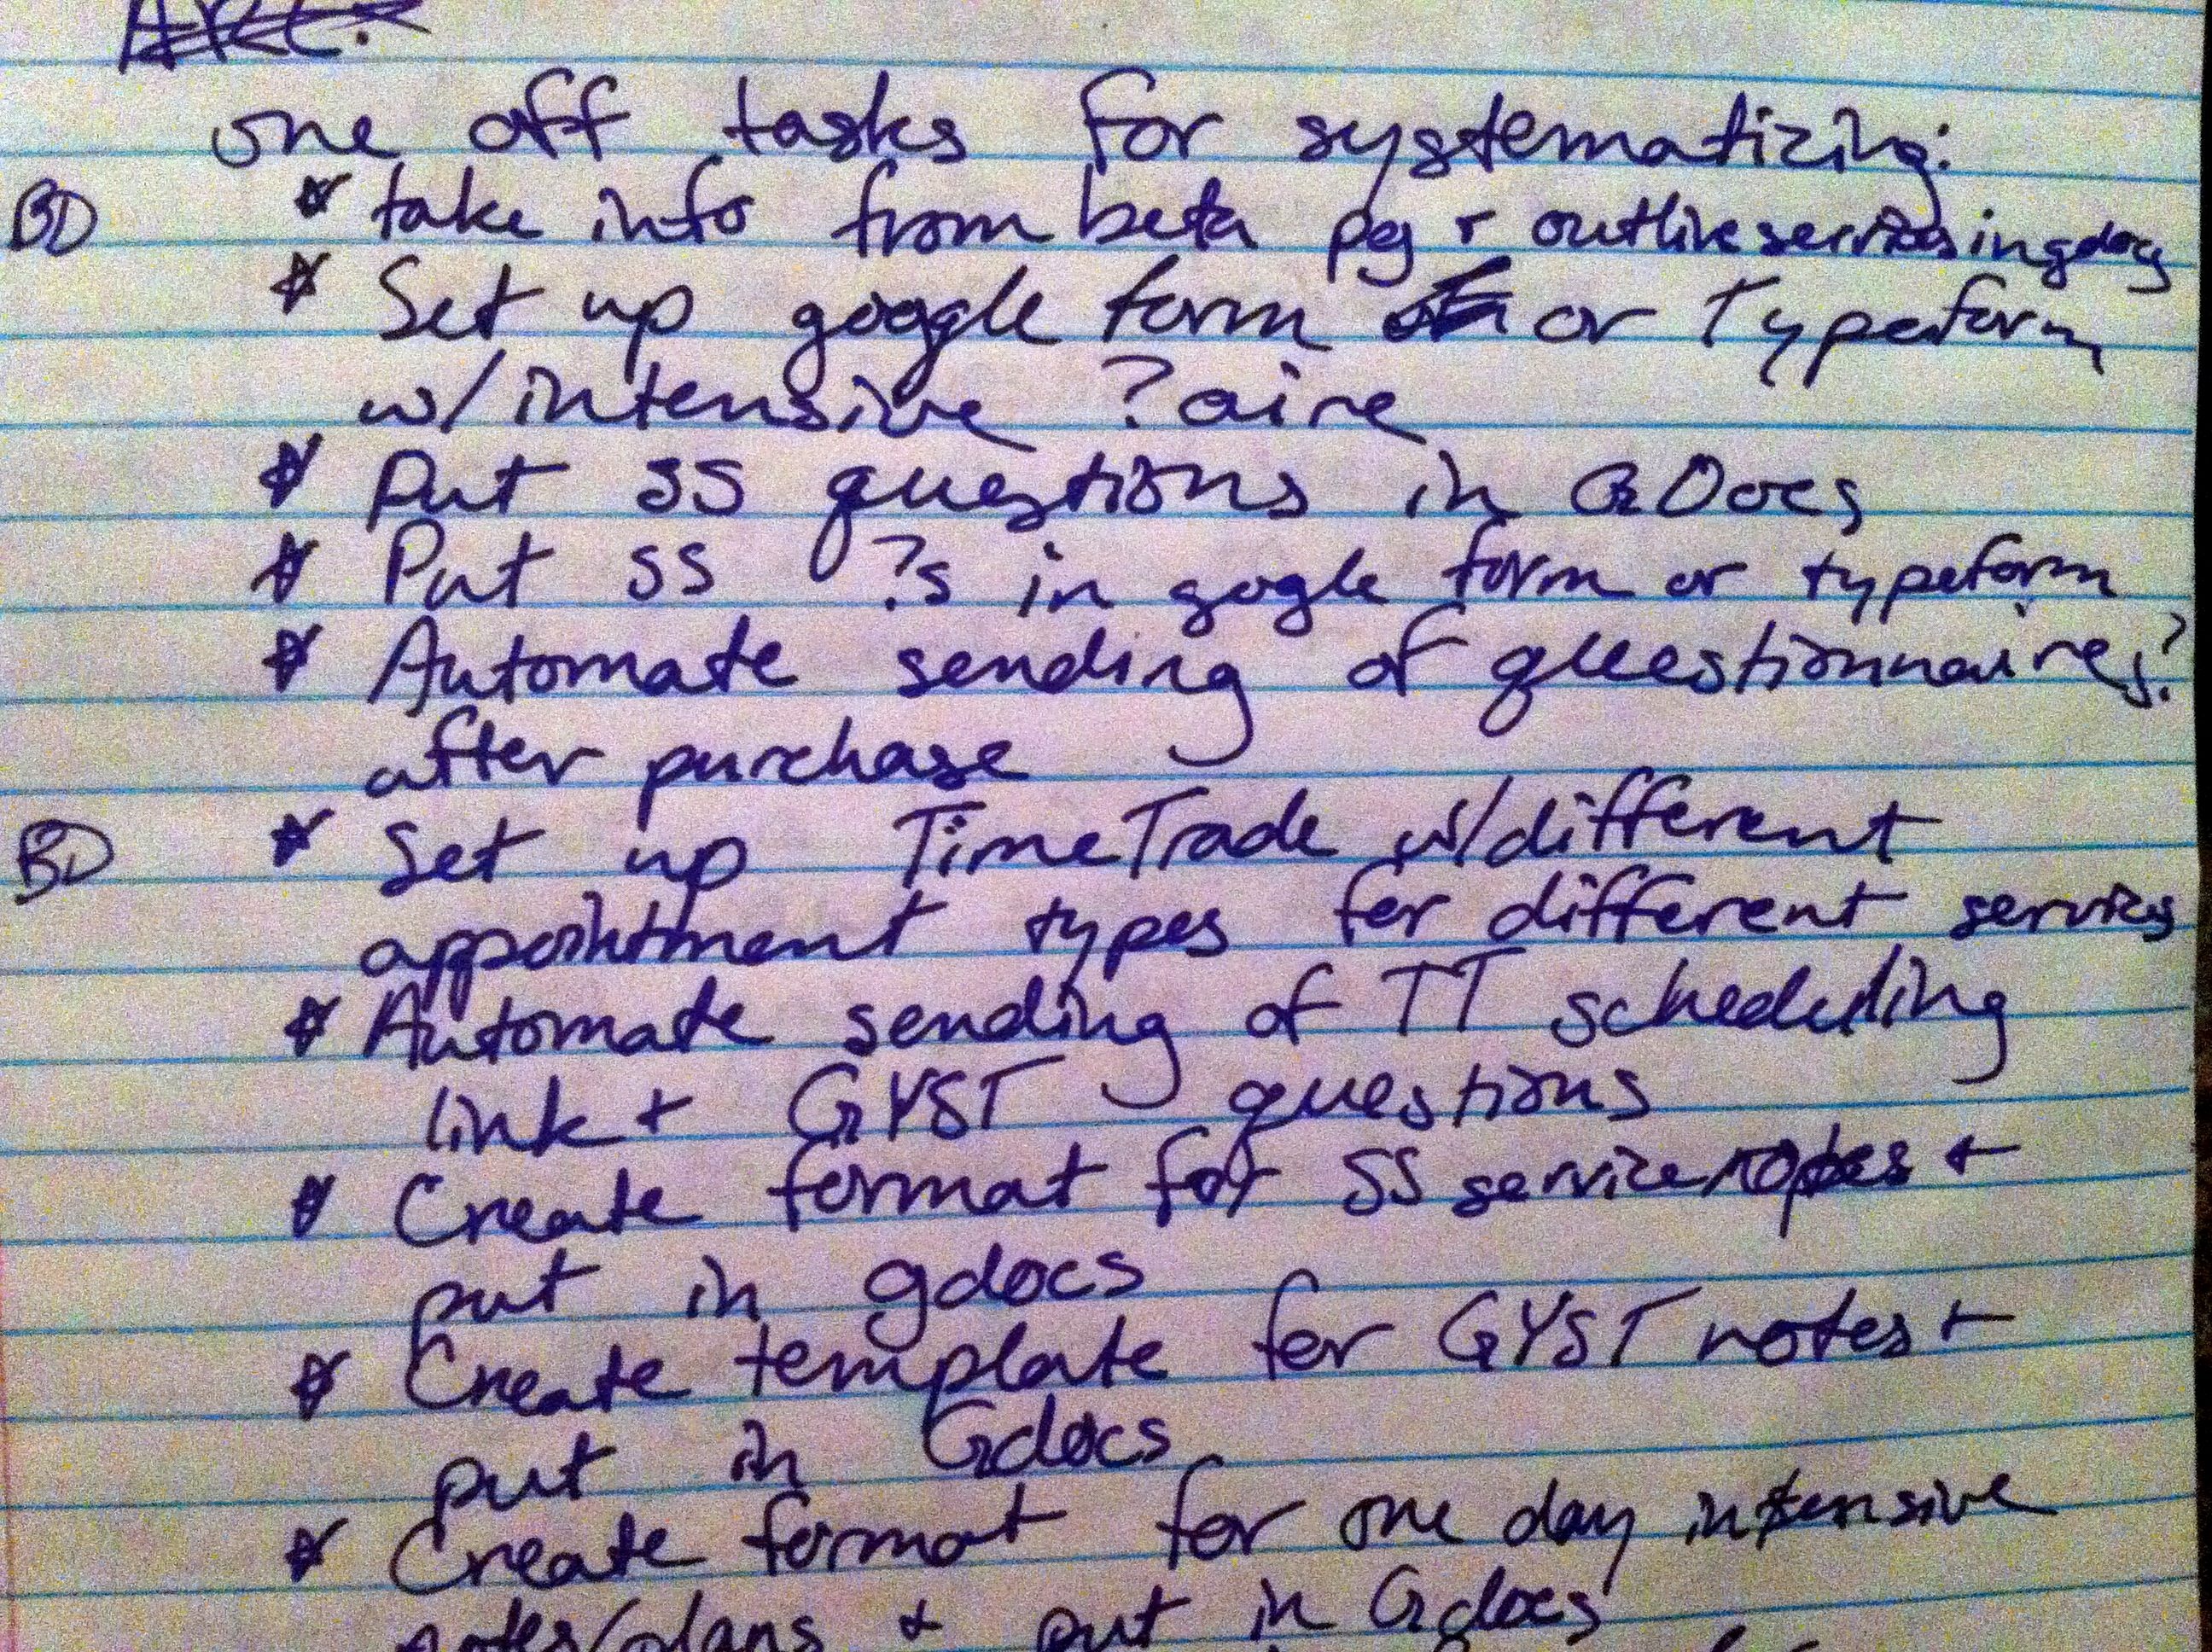 one off tasks for systematizing:
BD * take info from beta pg + outline services in gdocs
* Set up google form or Typeform
w/intensive ?aire
* Put SS questions in GDocs
* Put SS ?s in google form or typeform
* Automate sending of questionnaires?
after purchase
BD * Set up TimeTrade w/different
appointment types for different services
* Automate sending of TT scheduling
link + GYST questions
* Create format for SS service notes +
put in gdocs
* Create template for GYST notes +
put in Gdocs
* Create format for one day intensive
notes/plans + put in Gdocs